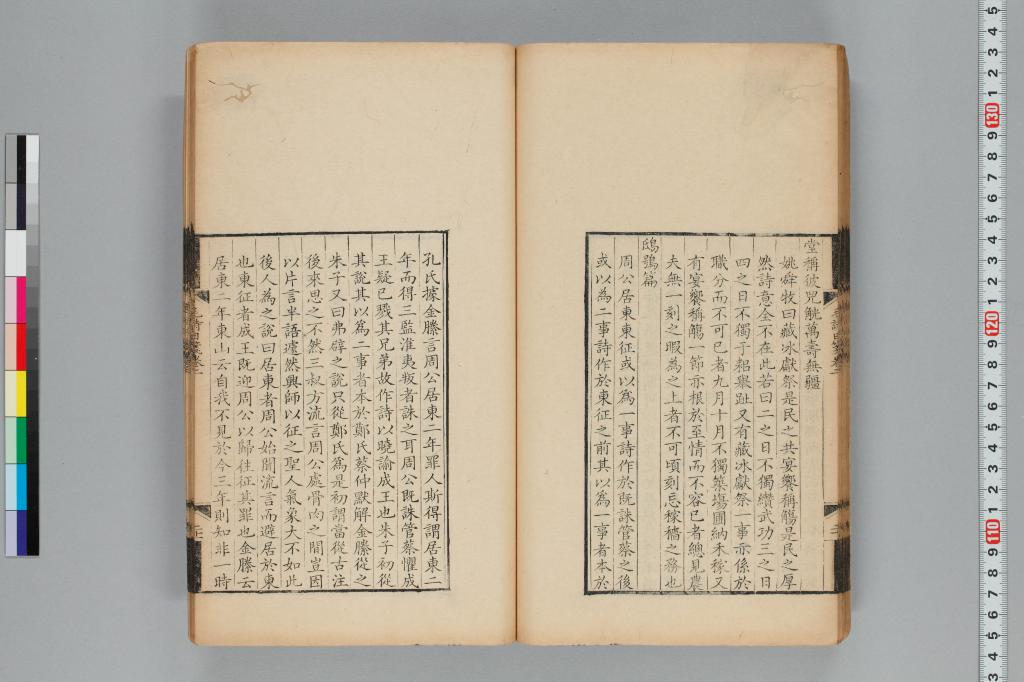 堂稱彼兕觥萬壽無疆
姚舜牧曰藏冰獻祭是民之共宴饗稱觴是民之厚
然詩意全不在此若曰二之日不獨纘武功三之日
四之日不獨于耜舉趾又有藏冰獻祭一事亦係於
職分而不可已者九月十月不獨築塲圃納禾稼又
有宴饗稱觴一節亦根於至情而不容已者總見農
夫無一刻之暇為之上者不可頃刻忘稼穡之務也
鴟鴞篇
周公居東東征或以為一事詩作於既誅管蔡之後
或以為二事詩作於東征之前其以為一事者本於
孔氏據金縢言周公居東二年罪人斯得謂居東二
年而得三監淮夷叛者誅之耳周公既誅管蔡懼成
王疑已戮其兄弟故作詩以曉諭成王也朱子初從
其說其以為二事者本於鄭氏蔡仲默解金縢從之
朱子又曰弗辟之說只從鄭氏為是初謂當從古注
後來思之不然三叔方流言周公處骨肉之間豈因
以片言半語遽然興師以征之聖人氣象大不如此
後人為之說曰居東者周公始聞流言而避居於東
也東征者成王既迎周公以歸往征其罪也金縢云
居東二年東山云自我不見於今三年則知非一時